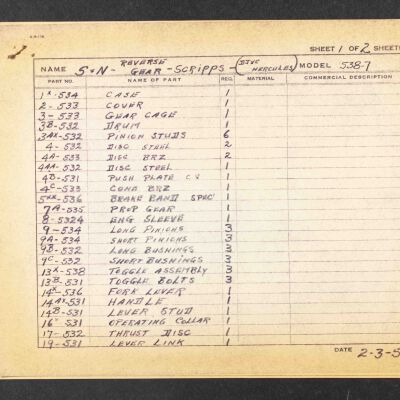 SHEET 1 OF 2 SHEETS
NAME S-N- REVERSE GEAR - SCRIPPS - (DJVC HERCULES) MODEL 538-7
PART NO. NAME OF PART REQ. MATERIAL COMMERCIAL DESCRIPTION
1X-534 CASE 1
2-533 COVER 1
3-533 GEAR CAGE 1
3B-532 DRUM 1
3AX-532 PINION STUDS 6
4-532 DISC STEEL 2
4A-533 DISC BRZ 2
4AA-532 DISC STEEL 1
4B-531 PUSH PLATE C.I. 1
4C-533 CONE BRZ 1
5XX-536 BRAKE BAND SPEC 1
7A-535 PROP GEAR 1
8-5324 ENG SLEEVE 1
9-534 LONG PINIONS 3
9A-534 SHORT PINIONS 3
9B-532 LONG BUSHINGS 3
9C-532 SHORT BUSHINGS 3
13X-538 TOGGLE ASSEMBLY 3
13B-531 TOGGLE BOLTS 3
14X-536 FORK LEVER 1
14AX-531 HANDLE 1
14B-531 LEVER STUD 1
16-531 OPERATING COLLAR 1
17-532 THRUST DISC 1
19-531 LEVER LINK 1
DATE 2-3-5